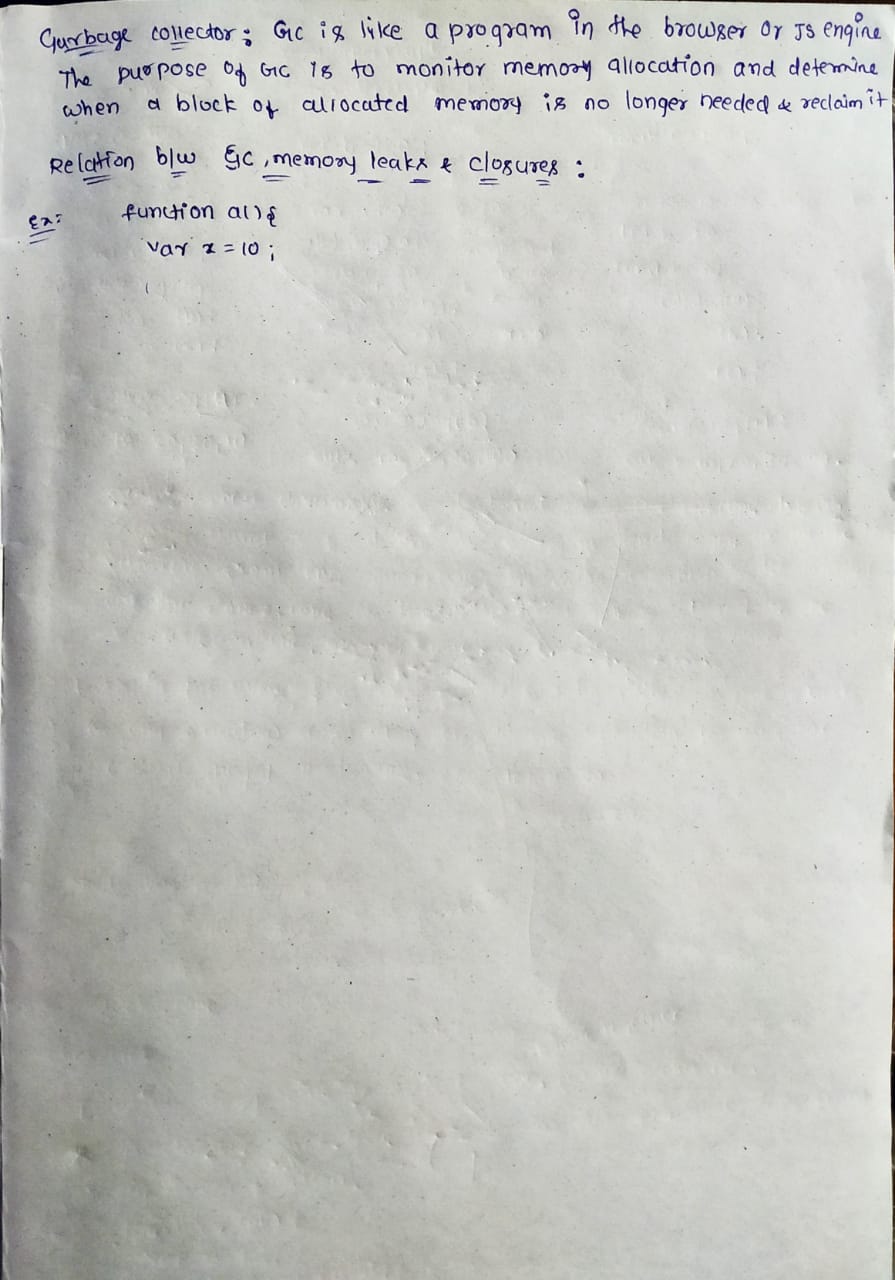 Garbage collector: GC is like a program in the browser or JS engine
The purpose of GC is to monitor memory allocation and determine
when a block of allocated memory is no longer needed & reclaim it
Relation b/w GC, memory leaks & closures :
Ex: function a() {
var x = 10 ;